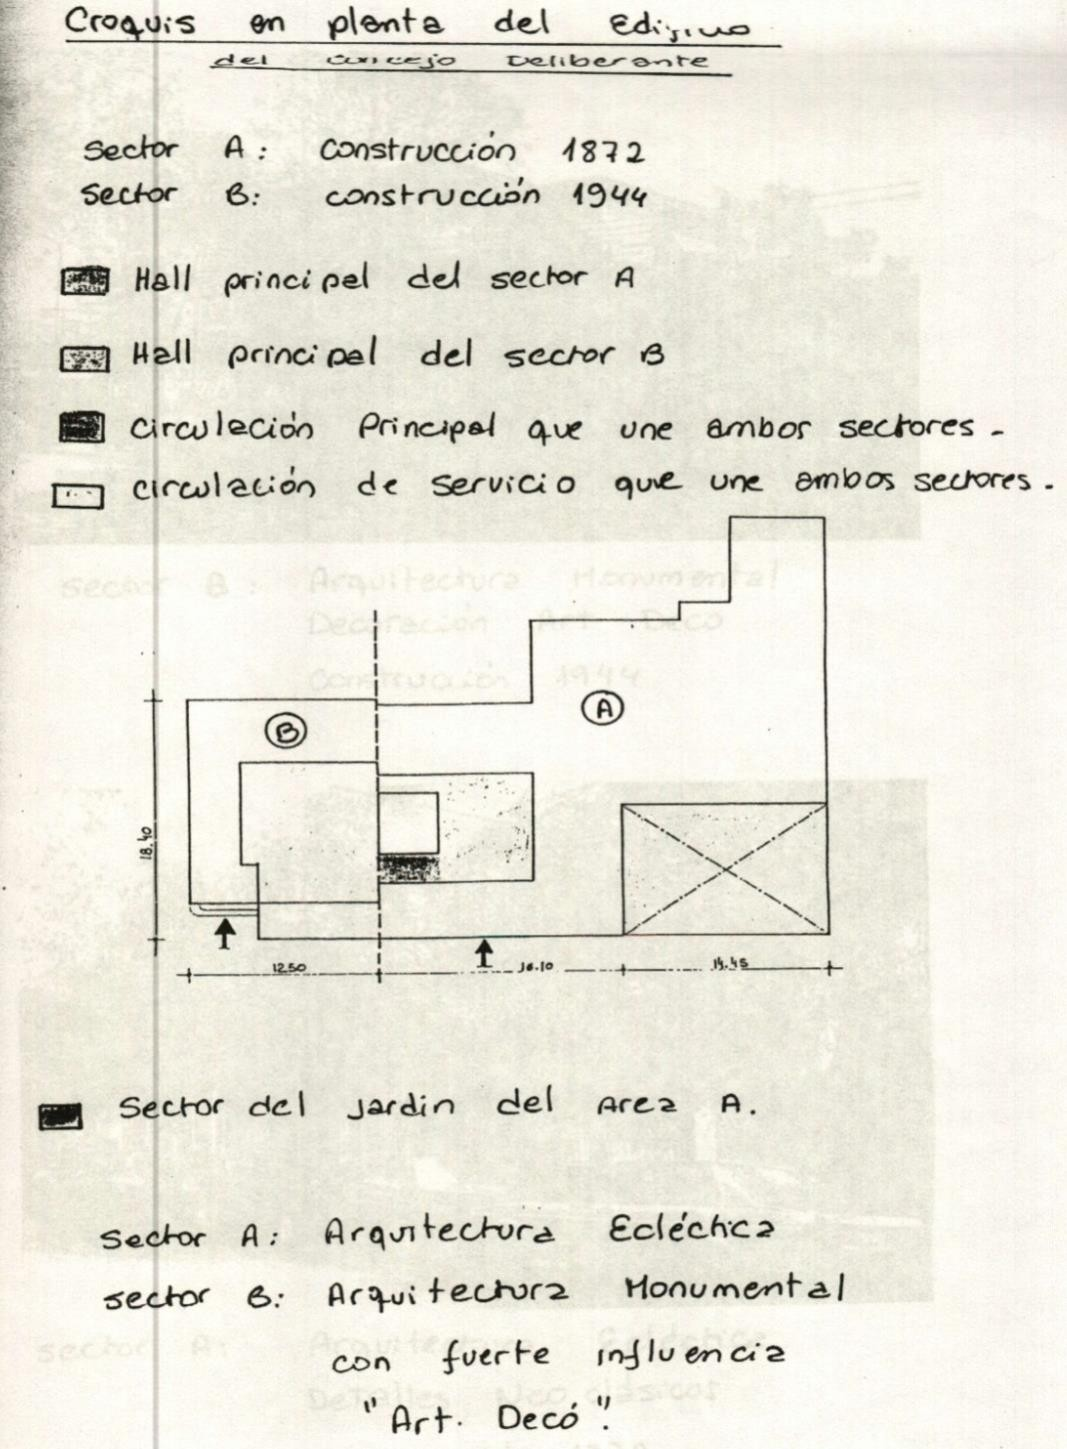 Croquis en planta del Edificio
del Concejo Deliberante
Sector A: Construcción 1872
Sector B: construcción 1944
Hall principal del sector A
Hall principal del sector B
Circulación Principal que une ambos sectores.
circulación de servicio que une ambos sectores.
sector B: Arquitectura Monumental
Decoración Art Deco
Construcción 1944
B
A
18.40
12.50 16.10 14.45
Sector del Jardin del Area A.
sector A: Arquitectura Ecléctica
sector B: Arquitectura Monumental
con fuerte influencia
"Art. Decó".
sector A: Arquitectura
Detalles Neoclásicos